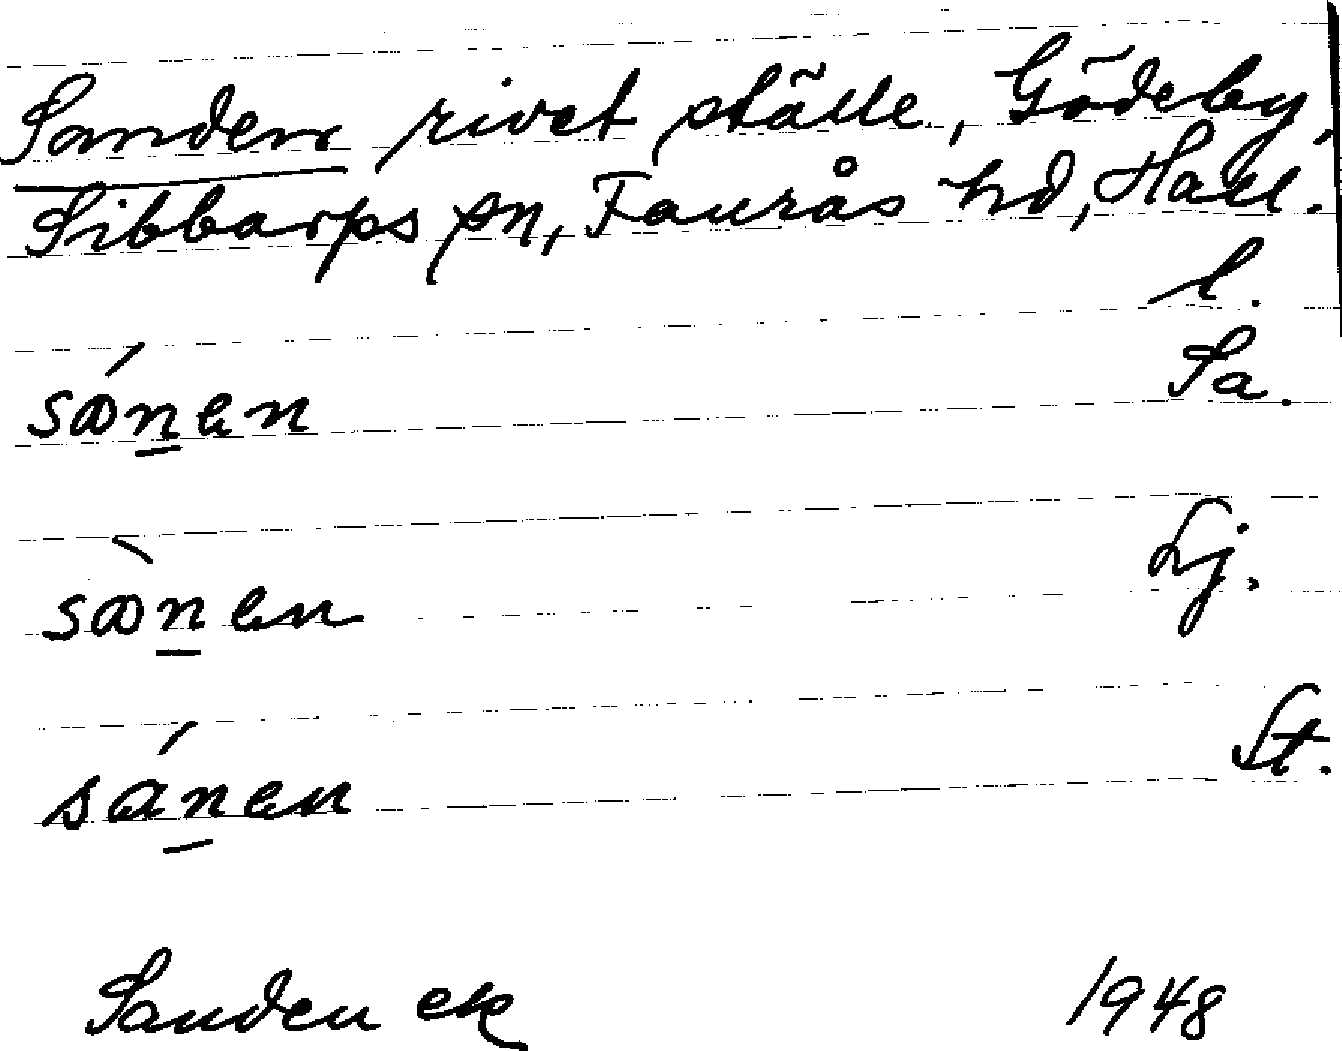 Sanden rivet ställe, Gödeby,
Sibbarps sn, Faurås hd, Hall.
l.
sɷ́n̲en Sa.
sɷ̀n̲en Lj.
sán̲en St.
Sanden ek 1948